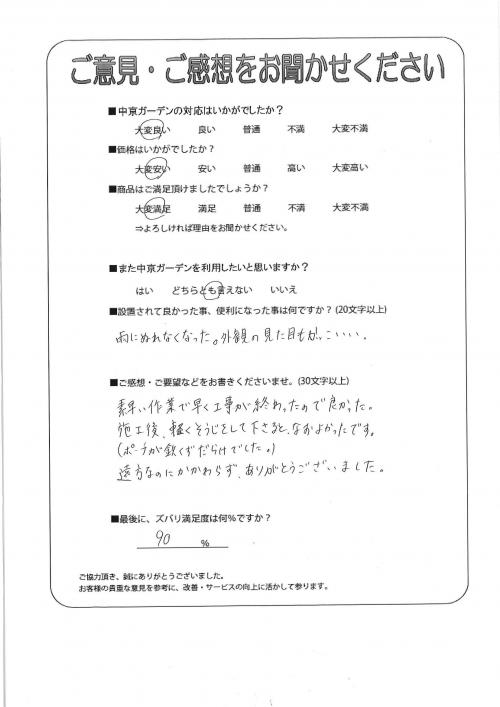 ご意見・ご感想をお聞かせください
■中京ガーデンの対応はいかがでしたか？
大変良い 良い 普通 不満 大変不満
■価格はいかがでしたか？
大変安い 安い 普通 高い 大変高い
■商品はご満足頂けましたでしょうか？
大変満足 満足 普通 不満 大変不満
⇒よろしければ理由をお聞かせください。
■また中京ガーデンを利用したいと思いますか？
はい どちらとも言えない いいえ
■設置されて良かった事、便利になった事は何ですか？(20文字以上)
雨にぬれなくなった。外観の見た目もがっこいい。
■ご感想・ご要望などをお書きくださいませ。(30文字以上)
素早い作業で早く工事が終わったので良かった。
施工後、軽くそうじをして下さると、なおよかったです。
(ポーチが鉄くずだらけでした。)
遠方なのにかかわらず、ありがとうございました。
■最後に、ズバリ満足度は何%ですか？
90 %
ご協力頂き、誠にありがとうございました。
お客様の貴重な意見を参考に、改善・サービスの向上に活かして参ります。